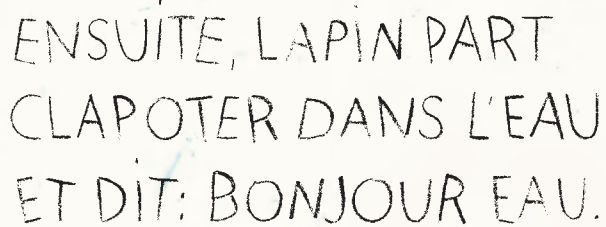 ENSUiTE, LAPiN PART
CLAPOTER DANS L'EAU
ET DiT: BONJOUR EAU.